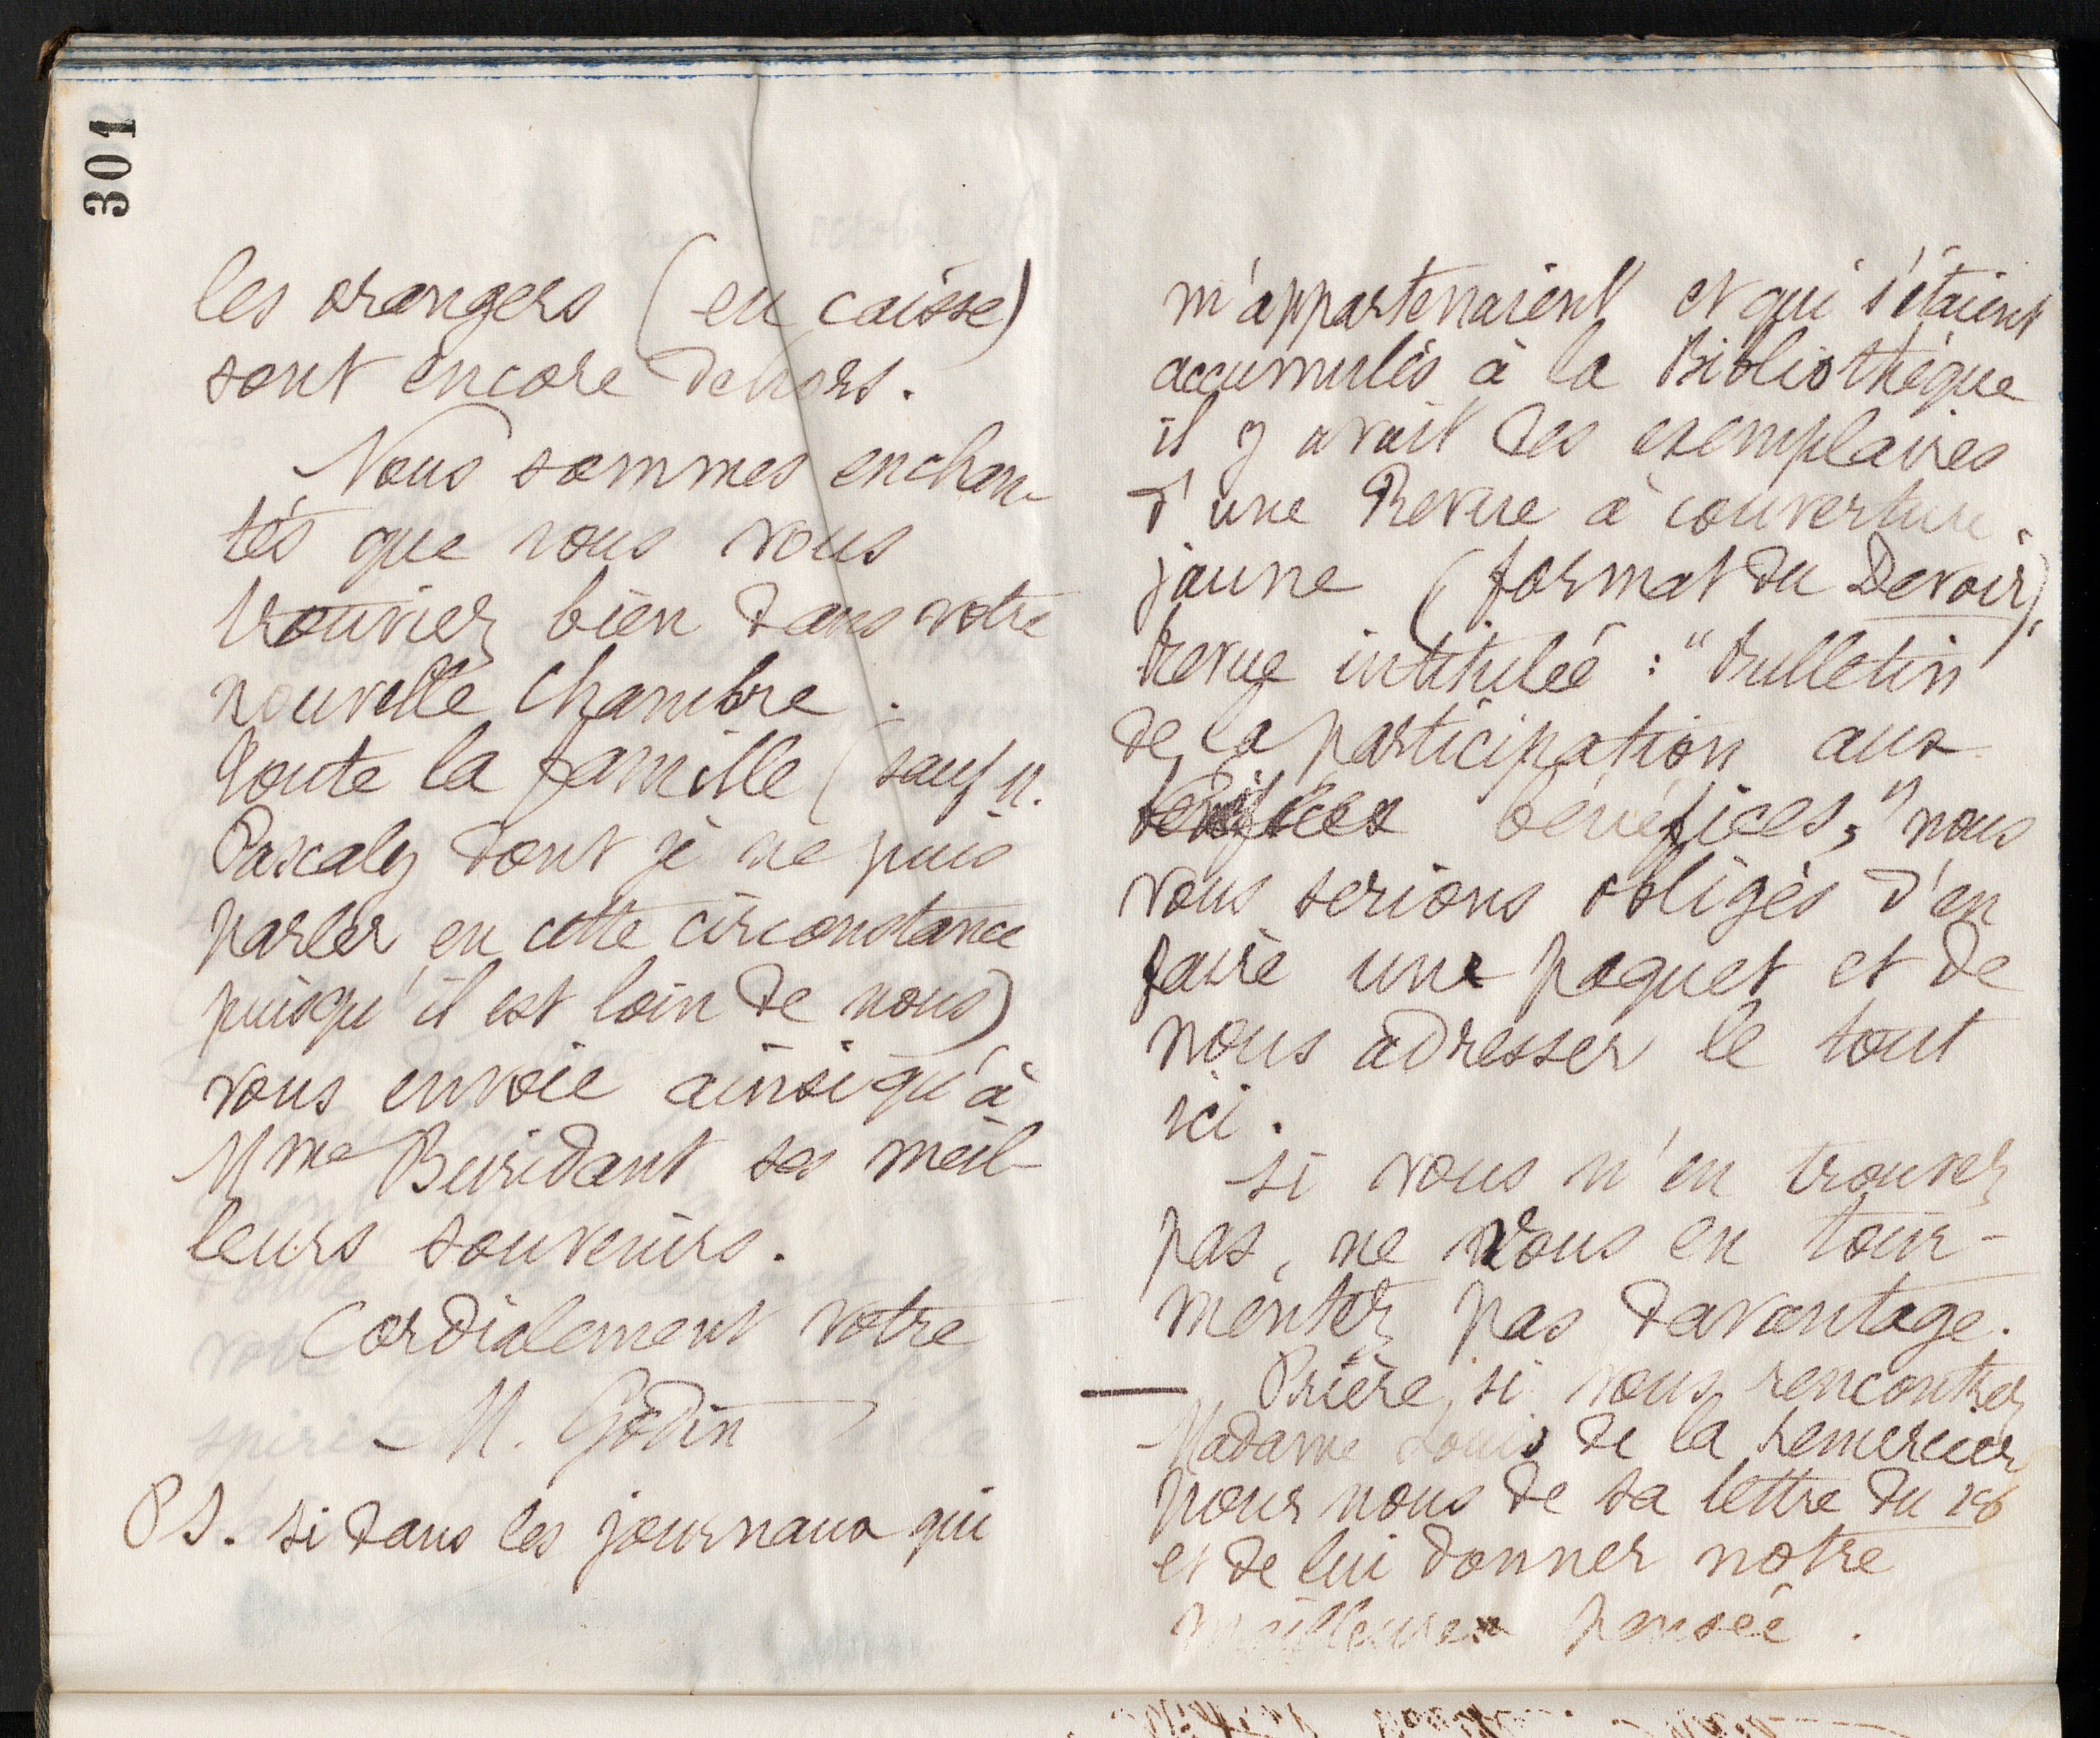 301
les orangers (en caisse)
sont encore dehors.
Nous sommes enchan-
tés que vous vous
trouviez bien dans votre
nouvelle chambre.
Toute la famille (sauf M.
Pascaly dont je ne puis
parler en cette circonstance
puisqu'il est loin de nous)
vous envoie ainsi qu'à
Mme Buridant ses meil-
leurs souvenirs.
Cordialement votre
M. Godin
PS. si dans les journaux qui
m'appartenaient et qui s'étaient
accumulés à la Bibliothèque
il y avait des exemplaires
d'une Revue à couverture
jaune (format du Devoir),
Revue intitulée : "Bulletin
de la participation aux
bénéfices," nous
vous serions obligés d'en
faire une paquet et de
nous adresser le tout
ici.
Si vous n'en trouvez
pas, ne vous en tour-
mentez pas davantage.
— Prière, si vous rencontrez
Madame Louis de la remercier
pour nous de sa lettre du
et de lui donner notre
meilleure pensée.